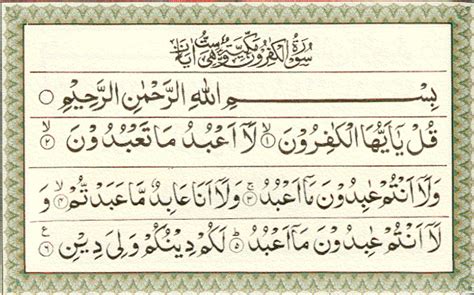 سُوْرَةُ الْكٰفِرُوْنَ مَكِّيَّةٌ وَّهِيَ سِتُّ اٰيَاتٍ
بِسْمِ اللهِ الرَّحْمٰنِ الرَّحِيْمِ ○
قُلْ يٰٓاَيُّهَا الْكٰفِرُوْنَ ۙ﴿۱﴾ لَاۤ اَعْبُدُ مَا تَعْبُدُوْنَ ۙ﴿۲﴾
وَلَاۤ اَنْتُمْ عٰبِدُوْنَ مَاۤ اَعْبُدُ ۚ﴿۳﴾ وَلَاۤ اَنَا عَابِدٌ مَّا عَبَدْتُّمْ ۙ﴿۴﴾ وَ
لَاۤ اَنْتُمْ عٰبِدُوْنَ مَاۤ اَعْبُدُ ؕ﴿۵﴾ لَكُمْ دِيْنُكُمْ وَلِيَ دِيْنِ ﴿۶﴾ ع